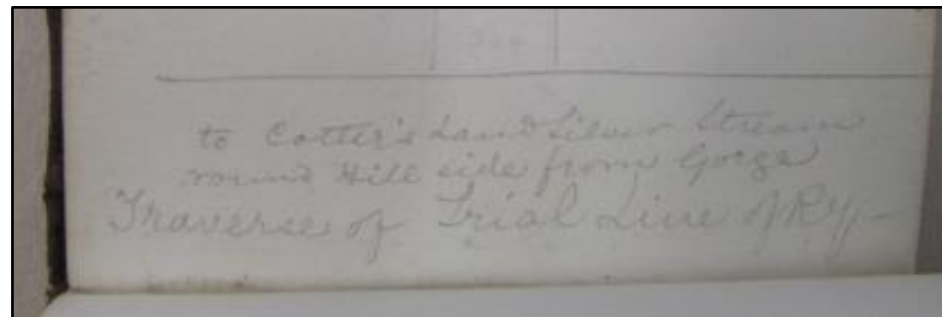 to Cotter's Land Silver Stream
round Hill side from Gorge
Traverse of Trial Line of Ry